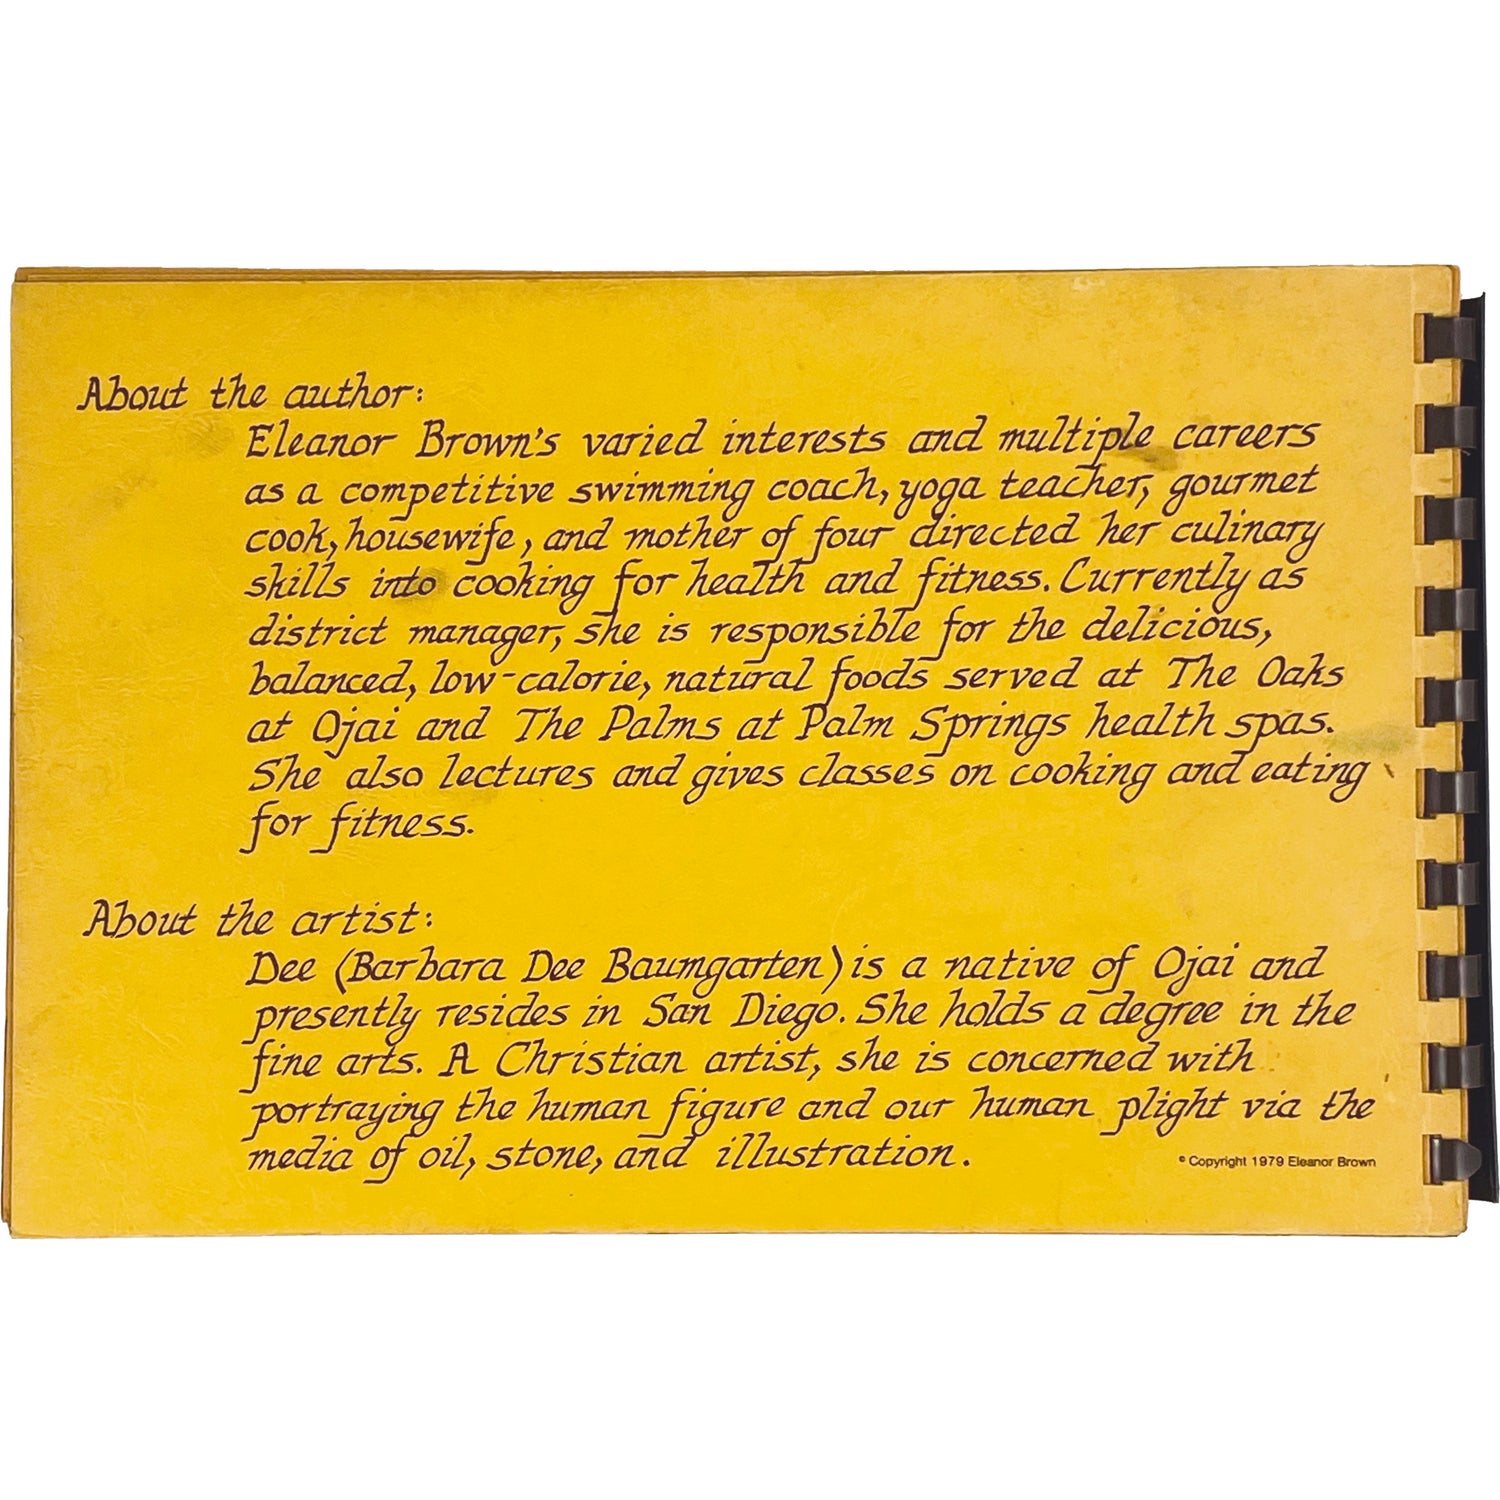 About the author:
Eleanor Brown's varied interests and multiple careers
as a competitive swimming coach, yoga teacher, gourmet
cook, housewife, and mother of four directed her culinary
skills into cooking for health and fitness. Currently as
district manager, she is responsible for the delicious,
balanced, low-calorie, natural foods served at The Oaks
at Ojai and The Palms at Palm Springs health spas.
She also lectures and gives classes on cooking and eating
for fitness.
About the artist:
Dee (Barbara Dee Baumgarten) is a native of Ojai and
presently resides in San Diego. She holds a degree in the
fine arts. A Christian artist, she is concerned with
portraying the human figure and our human plight via the
media of oil, stone, and illustration.
© Copyright 1979 Eleanor Brown